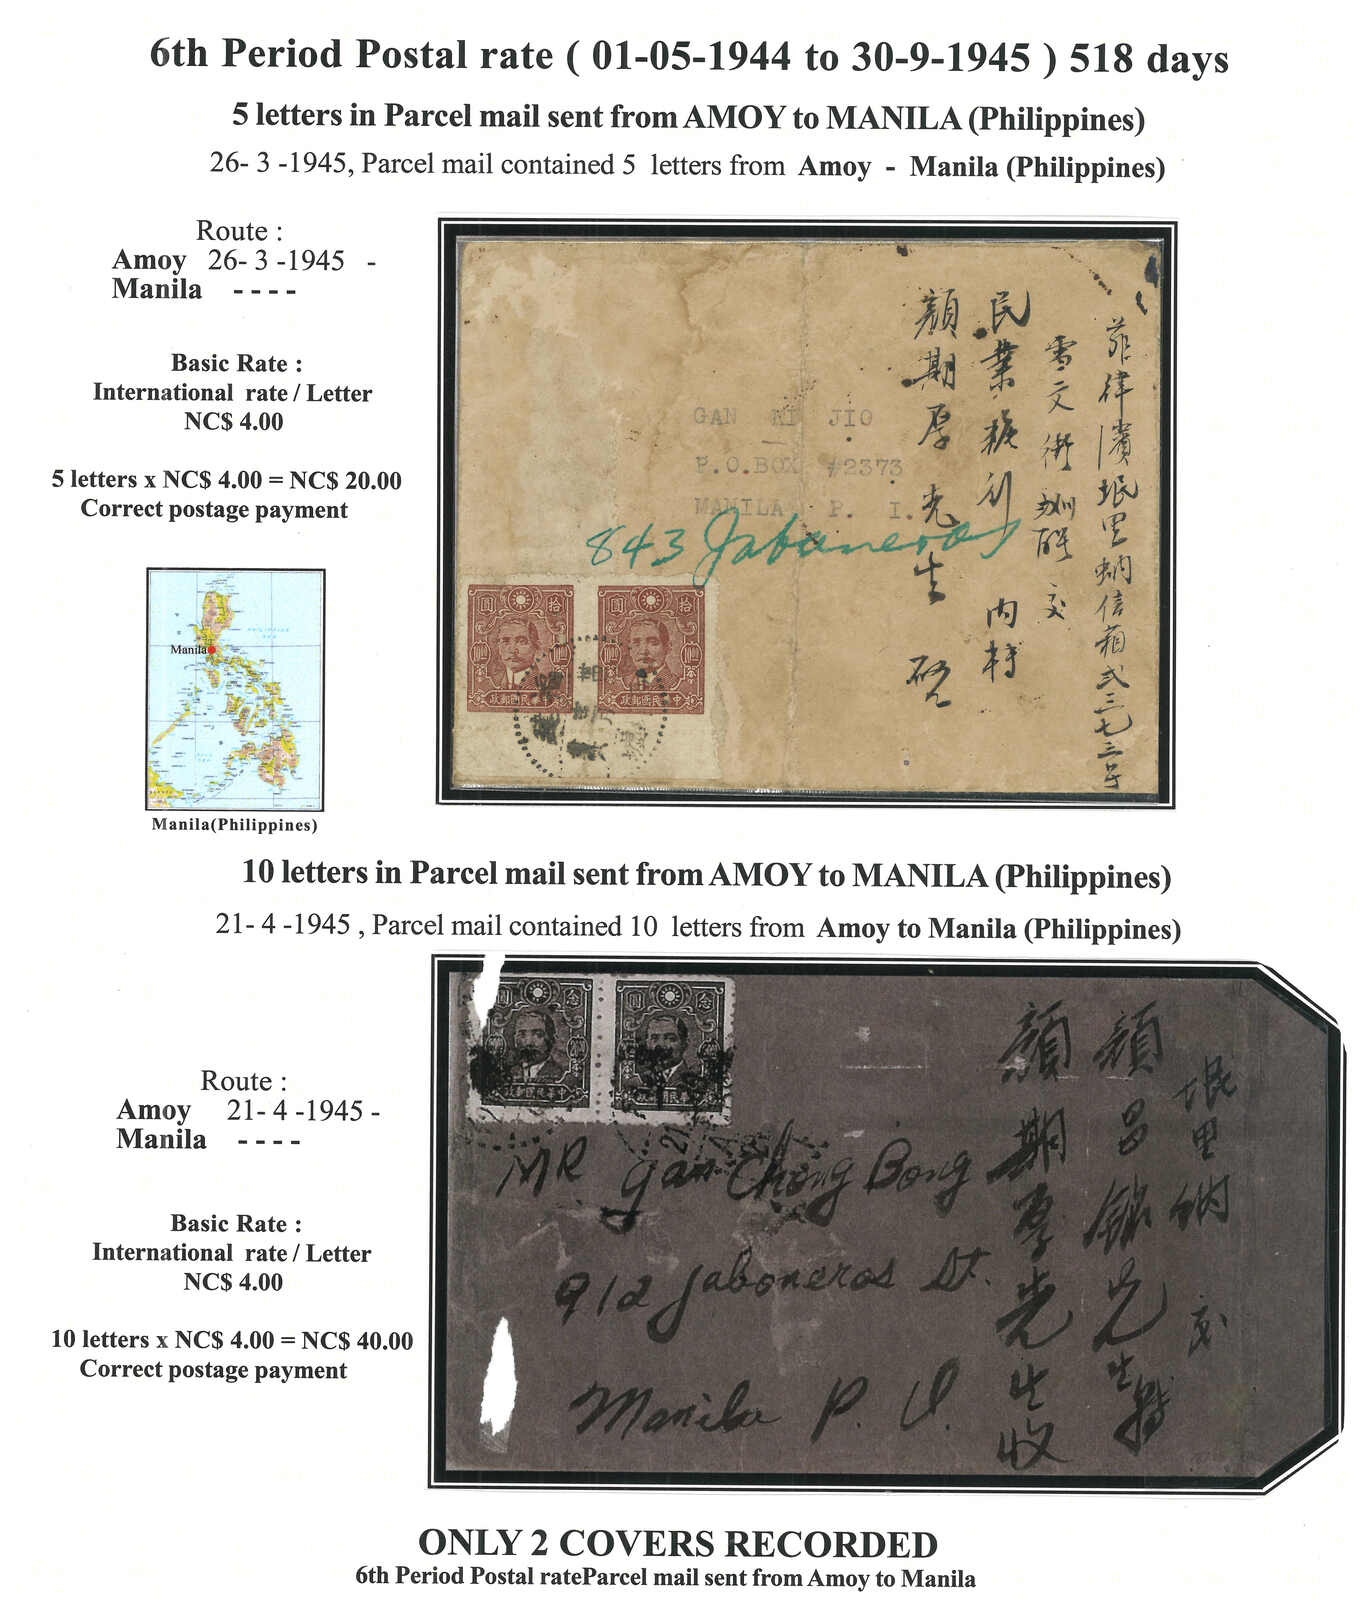 6th Period Postal rate ( 01-05-1944 to 30-9-1945 ) 518 days
5 letters in Parcel mail sent from AMOY to MANILA (Philippines)
26- 3 -1945, Parcel mail contained 5 letters from Amoy - Manila (Philippines)
Route :
Amoy 26- 3 -1945 -
Manila - - - -
Basic Rate :
International rate / Letter
NC$ 4.00
5 letters x NC$ 4.00 = NC$ 20.00
Correct postage payment
Manila
Manila(Philippines)
菲律濱岷里蚋信箱弍三七三号
雪文街 交
民業 內轉
顏期厚先生
GAN KI JIO
P.O.BOX #2373
MANILA P. I.
843 Jabaneros
圓 拾
政郵國民華中
圓 拾
政郵國民華中
10 letters in Parcel mail sent from AMOY to MANILA (Philippines)
21- 4 -1945 , Parcel mail contained 10 letters from Amoy to Manila (Philippines)
Route :
Amoy 21- 4 -1945 -
Manila - - - -
Basic Rate :
International rate / Letter
NC$ 4.00
10 letters x NC$ 4.00 = NC$ 40.00
Correct postage payment
圓 念
政郵國民華中
圓 念
政郵國民華中
岷里蚋交
顏昌銘先生轉
顏期厚先生收
MR Gan Chong Bong
912 Jaboneros St.
Manila P. I.
ONLY 2 COVERS RECORDED
6th Period Postal rateParcel mail sent from Amoy to Manila